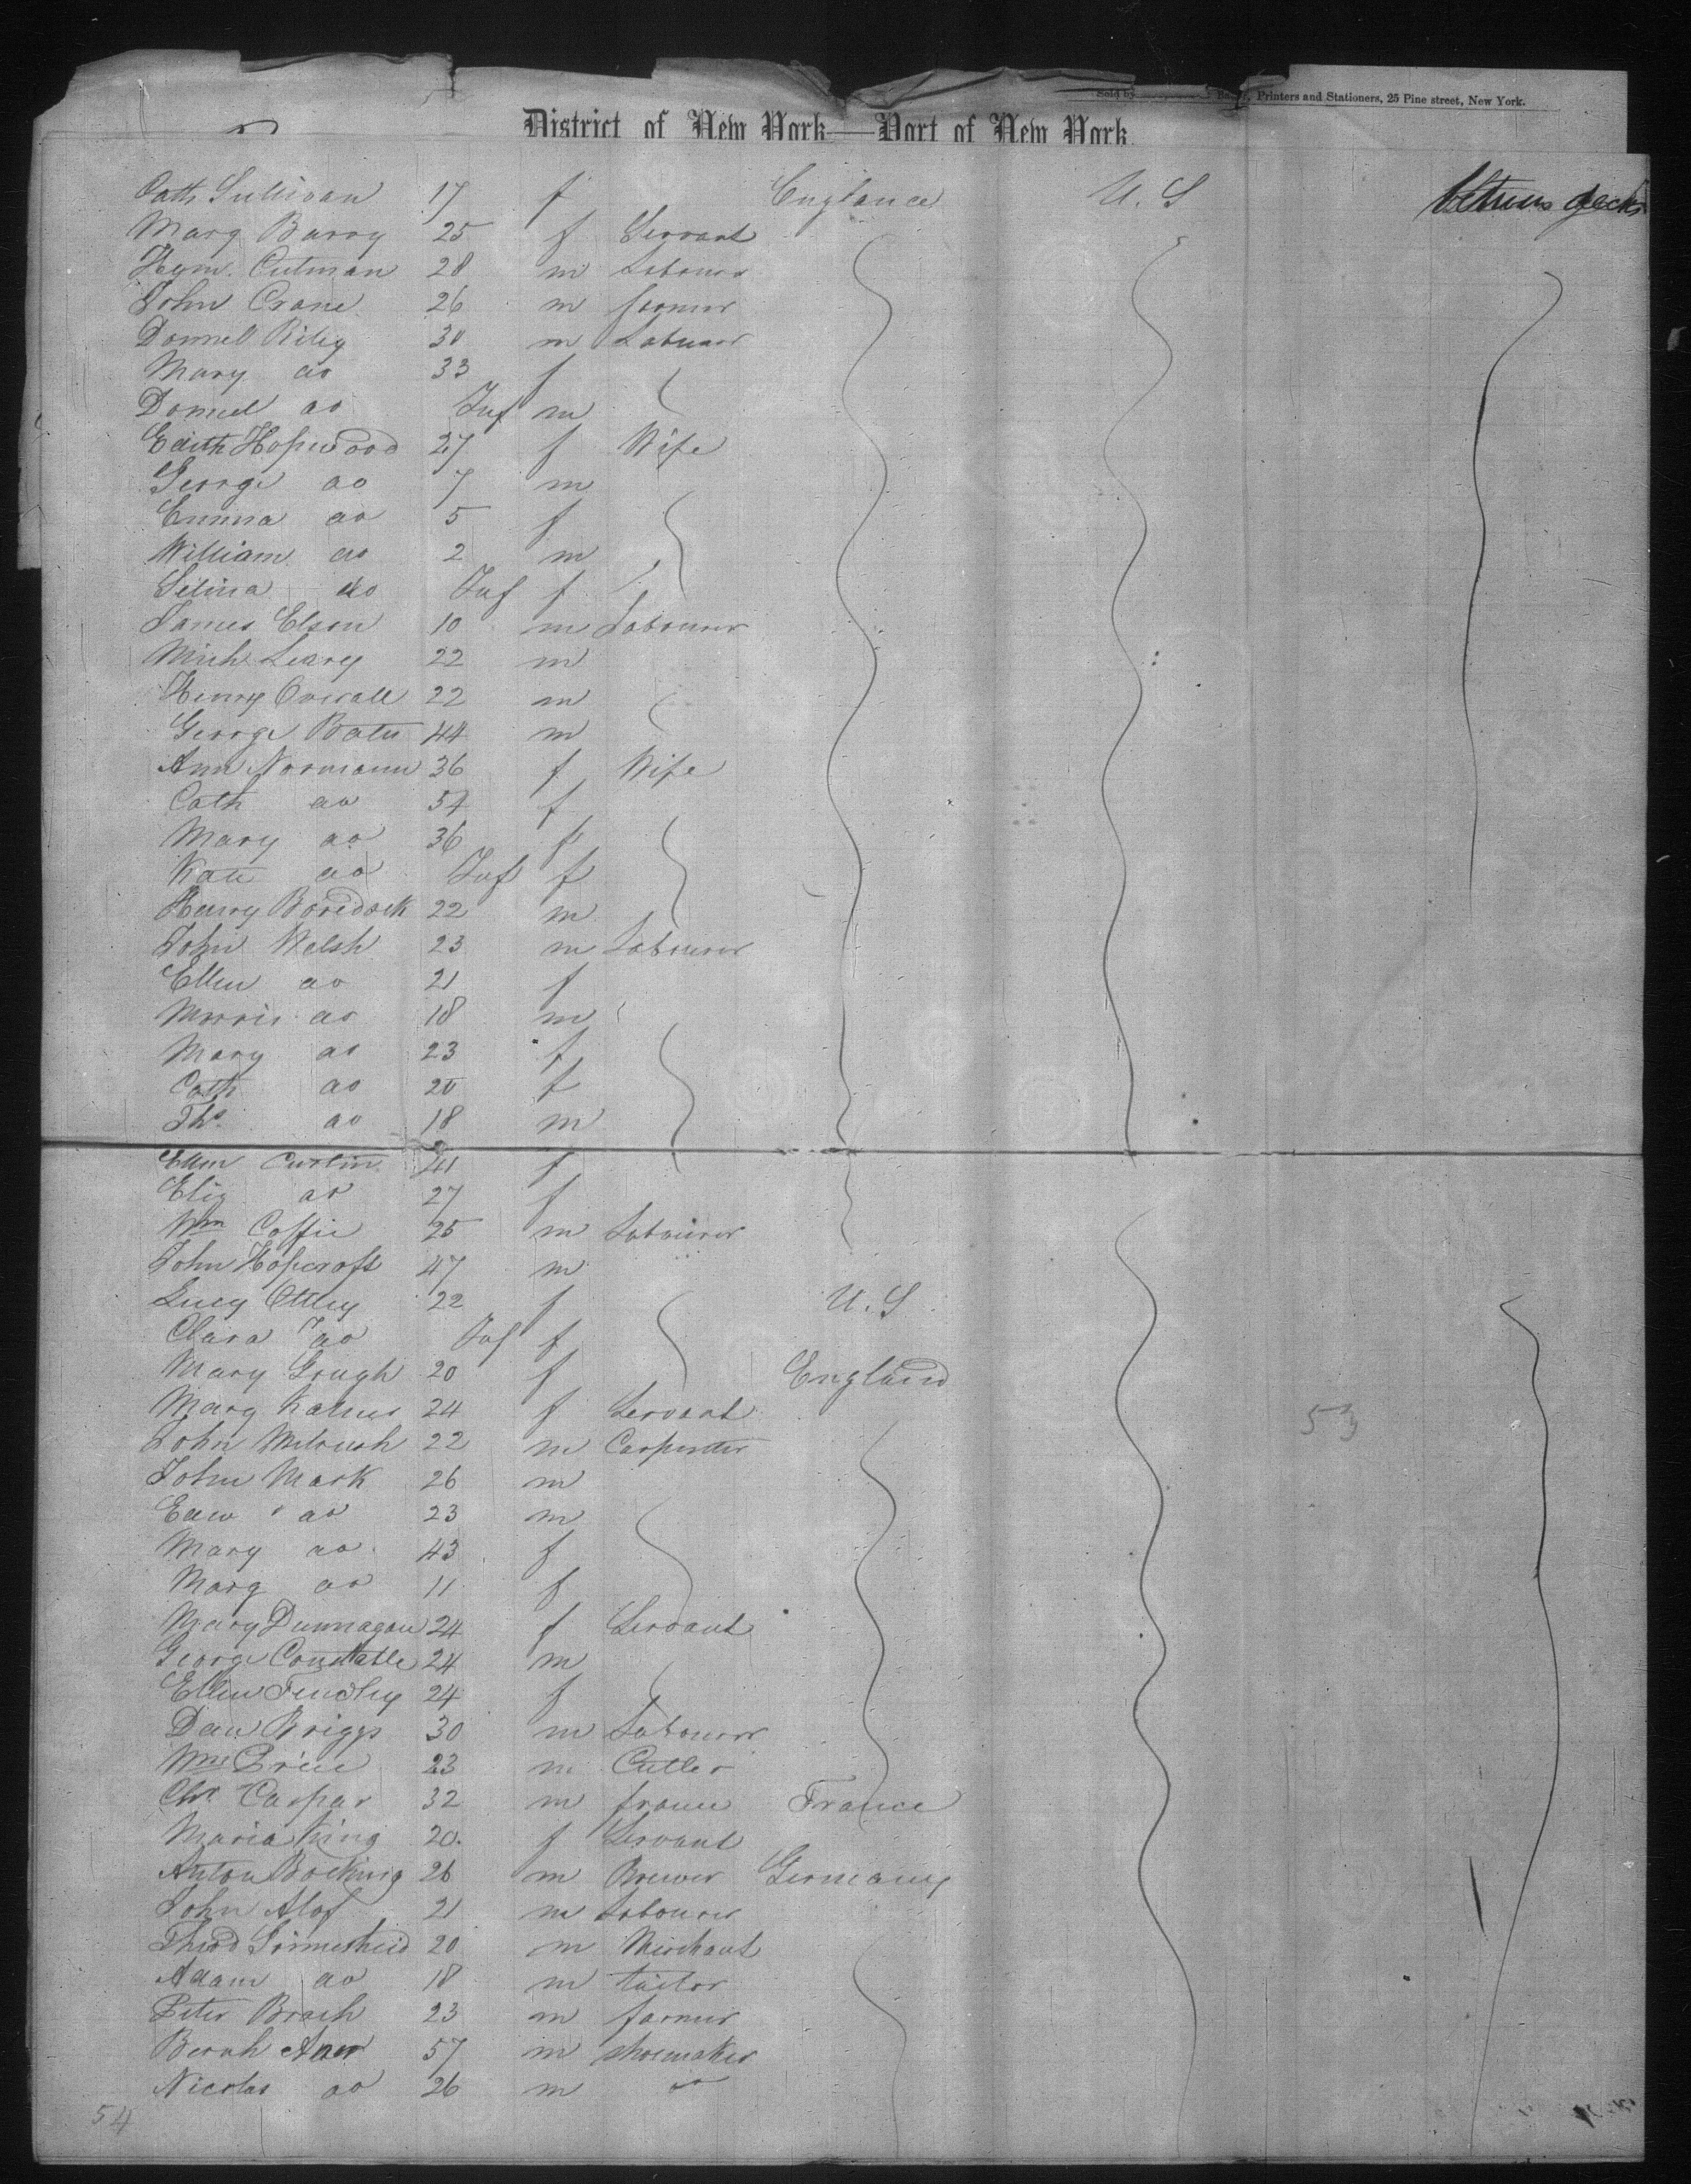 Sold by Printers and Stationers, 25 Pine street, New York.
District of New York—Port of New York.
Cath Sullivan 17 f England U.S Between decks
Marg Barry 25 f Servant
Hym. Cutman 28 m Labourer
John Crane 26 m farmer
Donnell Riley 30 m Labourer
Mary do 33 f
Daniel do Inf m
Edith Hopwood 27 f Wife
George do 7 m
Emma do 5 f
William do 2 m
Selina do Inf f
James Elson 10 m Labourer
Mich Leary 22 m
Henry Overall 22 m
George Bates 44 m
Ann Normann 36 f Wife
Cath do 54 f
Mary do 36 f
Kate do Inf f
Harry 22 m
John Welsh 23 m Labourer
Ellen do 21 f
Morris do 18 m
Mary do 23 f
Cath do 20 f
Ths do 18 m
Ellen Curtin 41 f
Eliz do 27 f
Wm Coffie 25 m Labourer
John Hopcroft 47 m
Lucy Ottley 22 f U.S
Clara do Inf f
Mary Gough 20 f England
Marg 24 f Servant
John 22 m Carpenter
John Mark 26 m
Edw do 23 m
Mary do 43 f
Marg do 11 f
Mary Dunnagan 24 f Servant
George Constable 24 m
Ellen 24 f
Dan Briggs 30 m Labourer
Wm Price 23 m Cutler
Chr Caspar 32 m France
Maria King 20 f Servant
Anton Bocking 26 m Brewer Germany
John Alof 21 m Labourer
Theod 20 m Merchant
Adam do 18 m tailor
Peter Brach 23 m farmer
57 m shoemaker
Nicolas do 26 m do
53
54